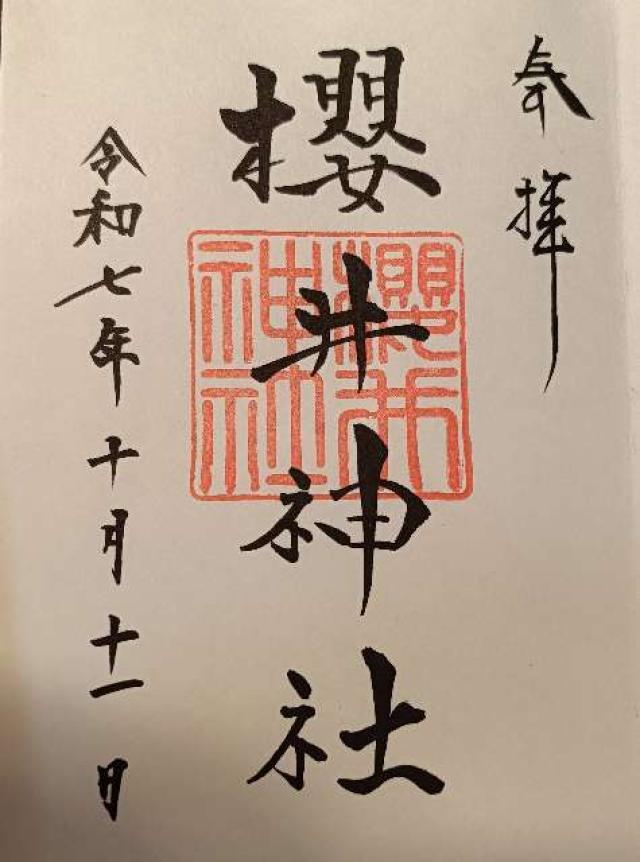 奉拝
櫻井神社
櫻井
神社
令和七年十月十一日